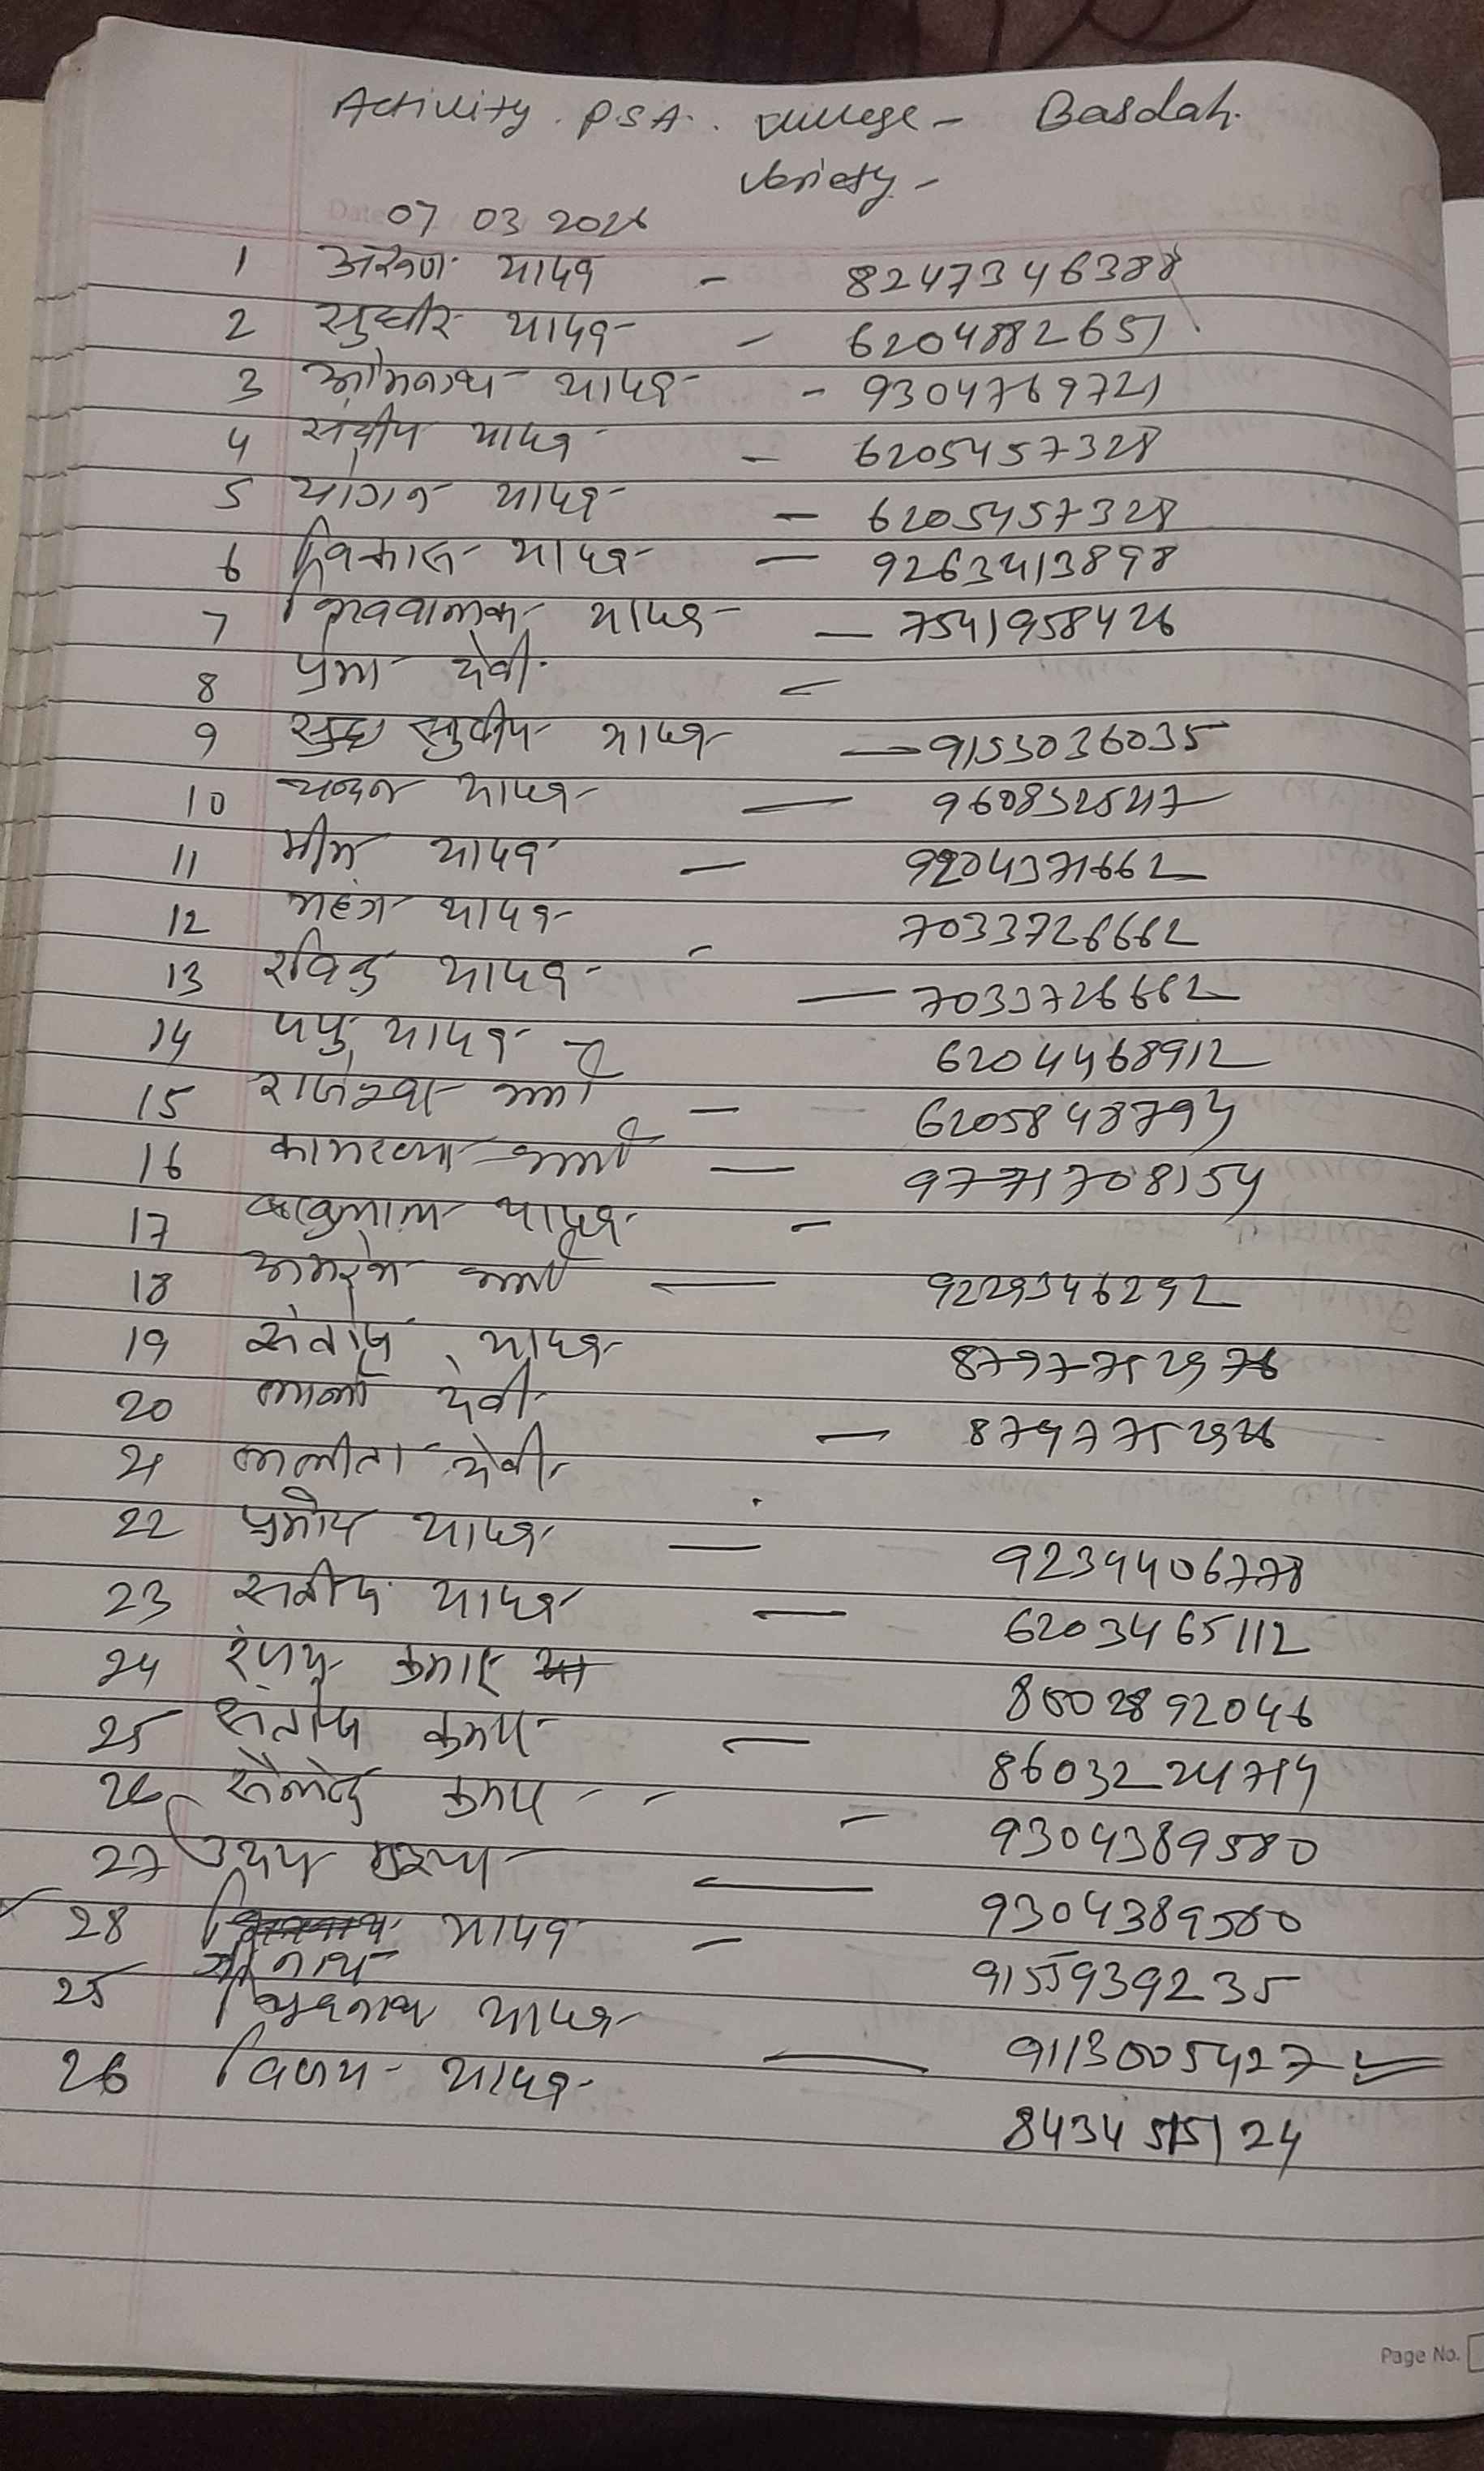 Activity. PSA. village - Basdah.
Variety -
Date 07 03 2026
1 अरूण यादव - 8247346388
2 सुधीर यादव - 6204882651
3 ओमनाथ यादव - 9304769721
4 संदीप यादव - 6205457328
5 यादव - 6205457328
6 विकास यादव - 9263413898
7 शिवबालक यादव - 7541958426
8 प्रभा देवी -
9 सुदीप यादव - 9153036035
10 चन्दन यादव - 9608525417
11 यादव - 9204371662
12 यादव - 7033726662
13 रविन्द्र यादव - 7033726662
14 पपु यादव - 6204468912
15 - 6205848794
16 - 9771708154
17 बाबुलाल यादव -
18 - 9229346292
19 संतोष यादव 8797752976
20 देवी - 8797752926
21 ललीता देवी
22 प्रमोद यादव - 9234406778
23 यादव - 6203465112
24 कुमार 8602892046
25 संतोष कुमार - 8603224794
26 शैलेन्द्र कुमार - - 9304389580
27 उदय - 9304389580
28 यादव - 9155939235
25 यादव 9113005427
26 विजय यादव - 8434515124
Page No.